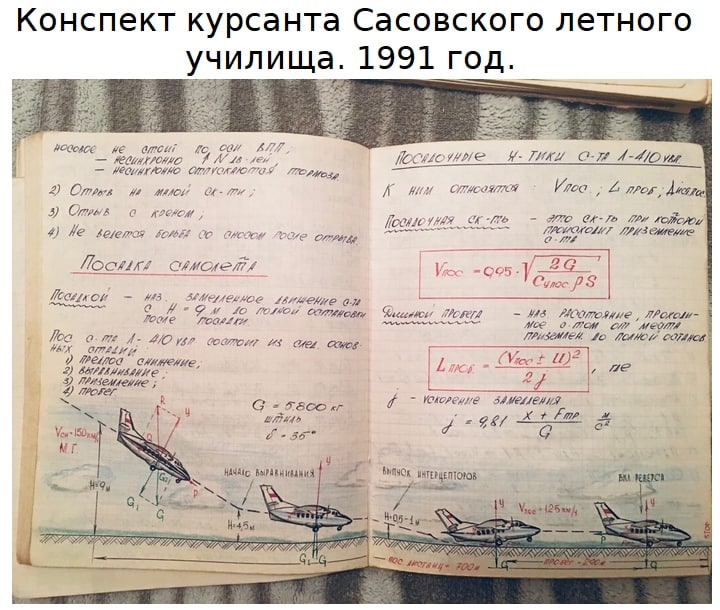 Конспект курсанта Сасовского летного
училища. 1991 год.
носовое не стоит по оси ВПП;
— несинхронно ↑N дв-лей
— несинхронно отпускаются тормоза.
2) Отрыв на малой ск-ти;
3) Отрыв с креном;
4) Не ведется борьба со сносом после отрыва.
Посадка самолета
Посадкой — наз. замедленное движение с-та
с H = 9 м до полной остановки
после посадки.
Пос. с-та Л-410 увп состоит из след. основ-
ных стадий
1) предпос снижение;
2) выравнивание;
3) приземление;
4) пробег
G = 5.800 кг
штиль
δ = 35°
Vсн=150км/ч
М.Г.
R
y
Q
G2
P
G1
G
H=9м
начало выравнивания
y
H=4,5м
G1 G
Посадочные х-тики с-та Л-410 увп
К ним относятся: Vпос; L проб;
Посадочная ск-ть — это ск-ть при которой
происходит приземление
с-та
Vпос = 0,95·√2G/Cупос ρ S
Длиной пробега — наз расстояние, проходи-
мое с-том от места
приземлен. до полной останов
L проб. = (Vпос ± U)²/2j, где
j - ускорение замедления
j = 9,81 X + Fтр/G м/с²
выпуск интерцепторов
вкл реверса
H=0,5-1м
y
Vпос=125км/ч
y
P
G
G
пос дистанц = 700м
пробег = 240м